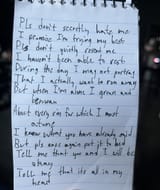 Pls don't secretly hate me
I promise I'm trying my best
Pls don't quietly resent me
I haven't been able to rest
During the day I may not portray
That I actually want to
But when I'm alone I groan and
bemoan
About every sin for which I must
atone
I know what you have already said
But pls once again put it to bed
Tell me that you and I will be
okay
Tell me that its all in my
head